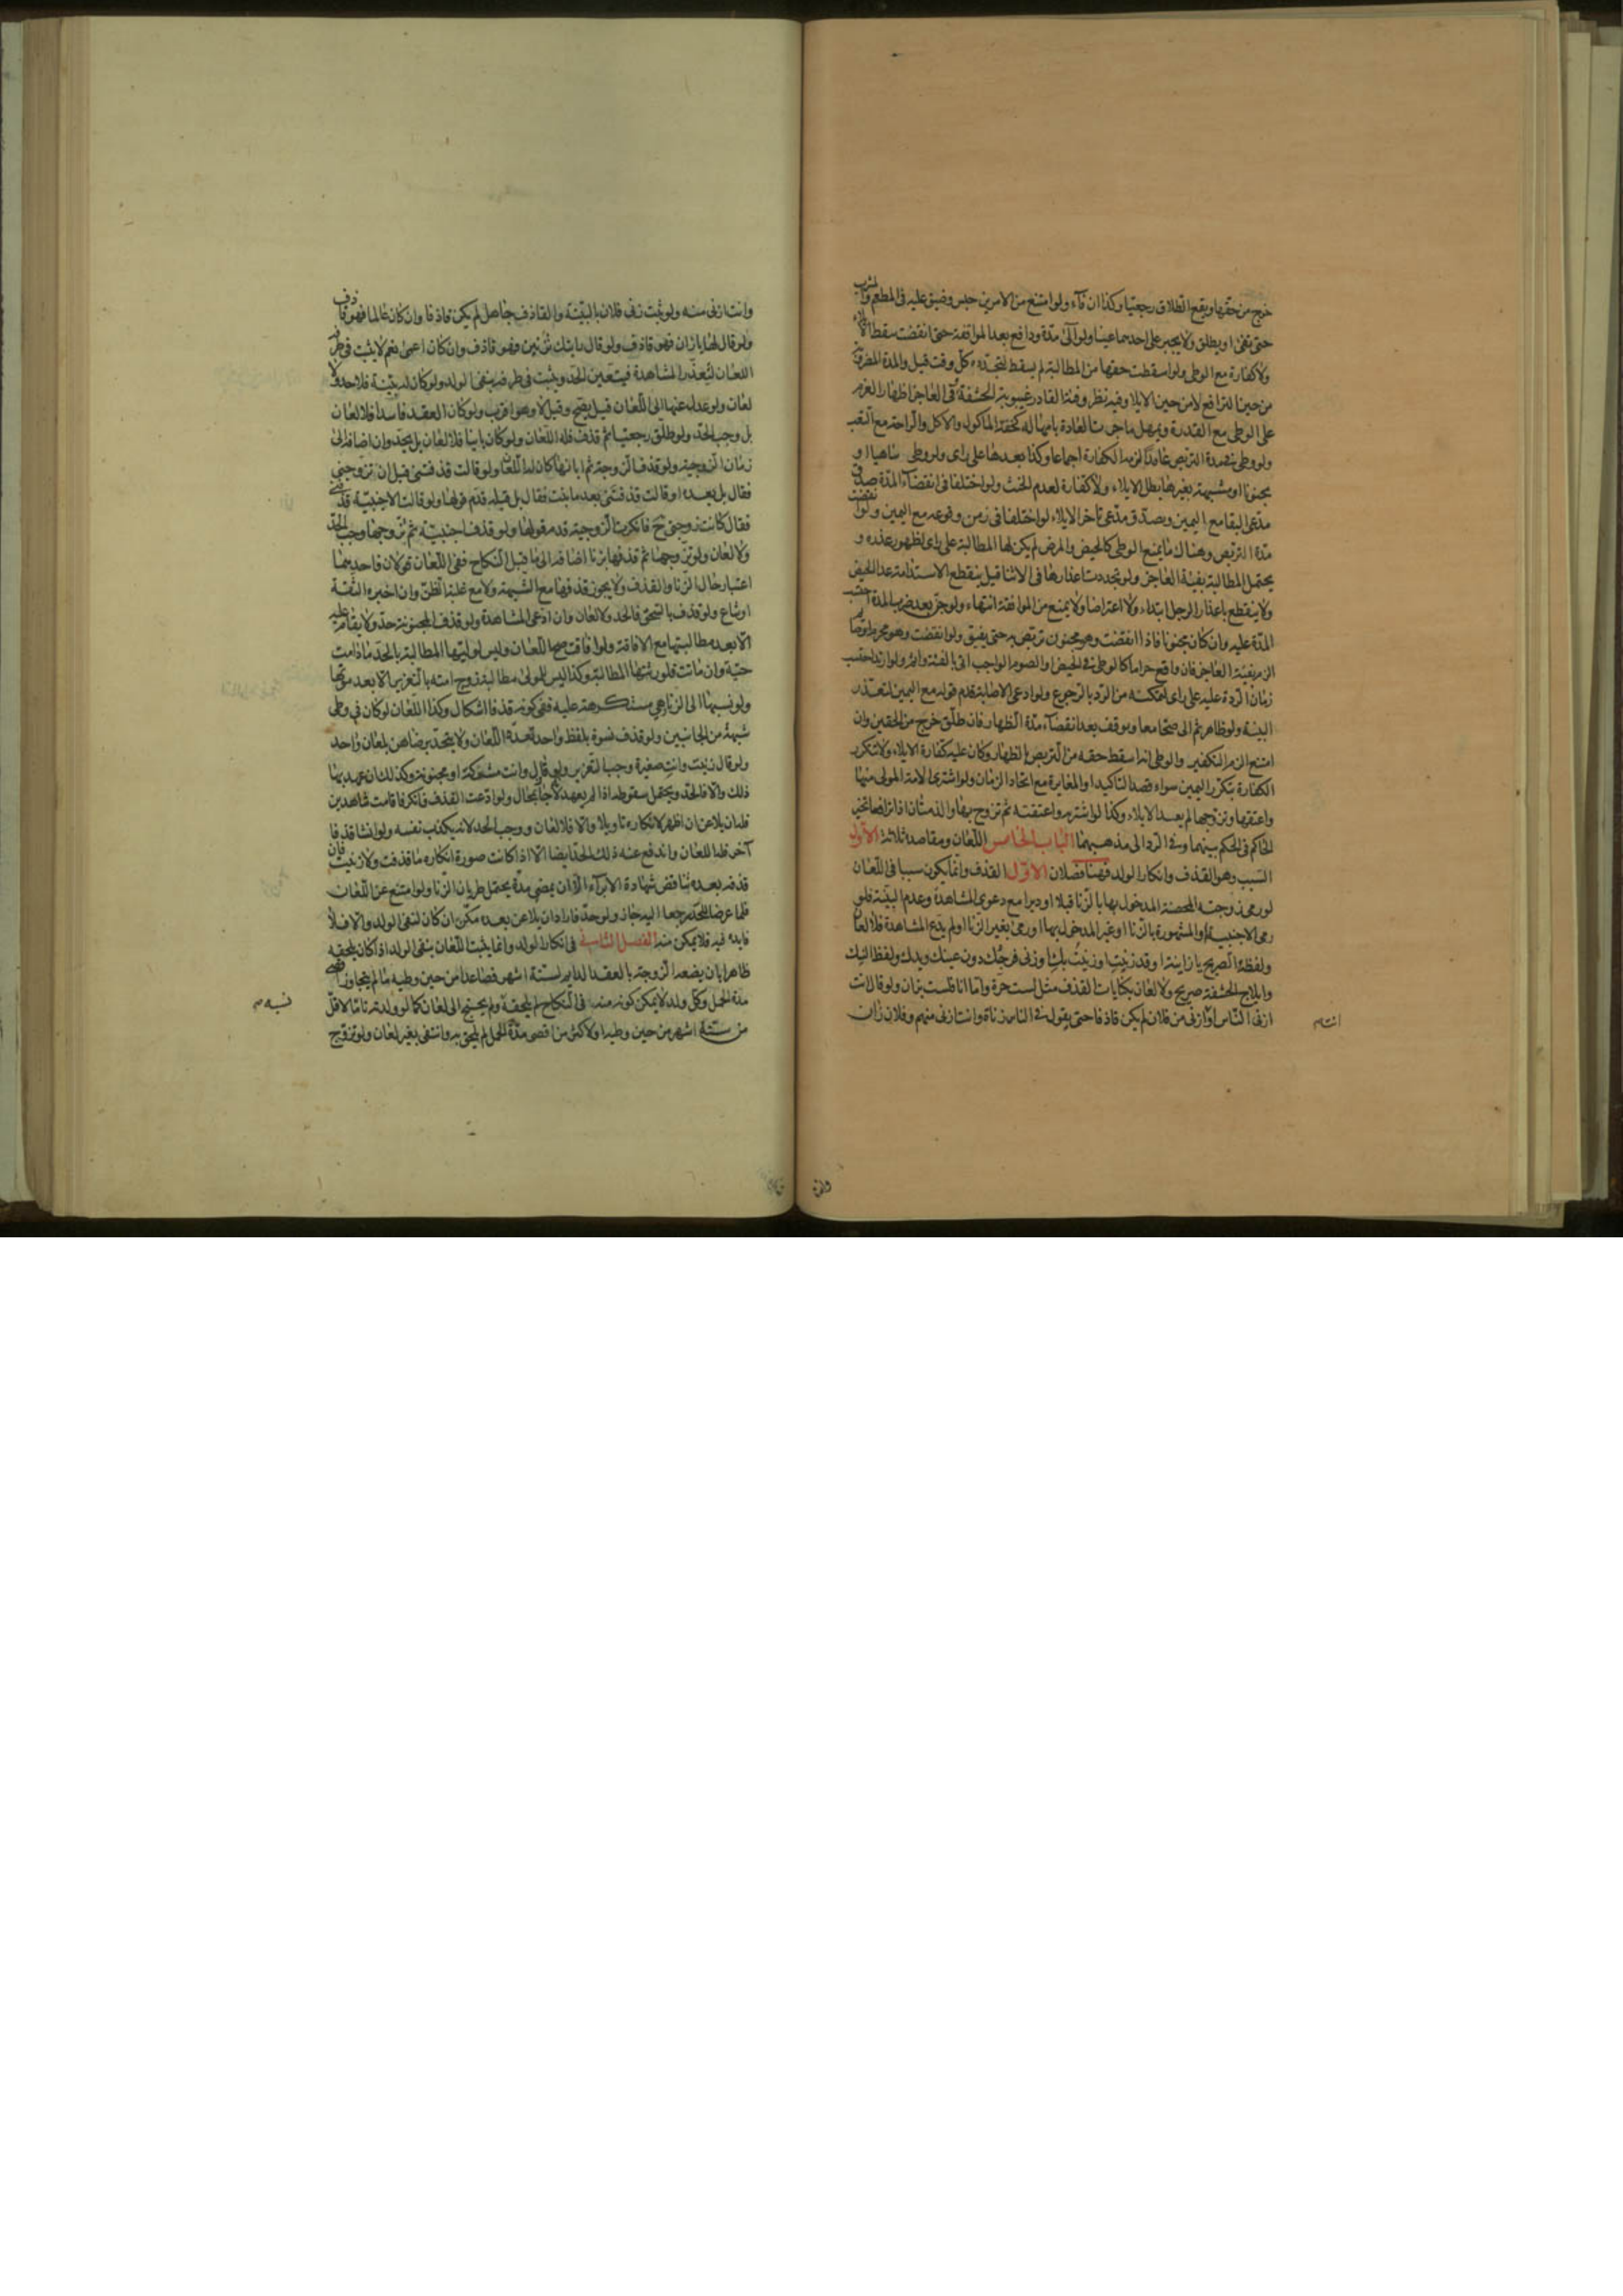 خرج من حقها ويقع الطلاق رجعيا وكذا ان فاء ولو امتنع من الامرين حبس وضيق عليه في المطعم والمشرب
حتى يفئ او يطلق ولا يجبر على احدهما عينا ولو آلى مدة ودافع بعد المرافعة حتى انقضت سقط الايلاء
ولا كفارة مع الوطي ولو اسقطت حقها من المطالبة لم يسقط لتجدده كل وقت قيل والمدة المضروبة
من حين الترافع لا من حين الايلا وفيه نظر وفئة القادر غيبوبة الحشفة وفي العاجز اظهار العزم
على الوطي مع القدرة ويمهل ما جرت العادة بامهاله كخفة الماكول والاكل والراحة مع التعب
ولو وطي في مدة التربص عامدا لزمه الكفارة اجماعا وكذا بعدها على راى ولو وطي ساهيا او
مجنونا او مشبهة بغيرها بطل الايلاء ولا كفارة لعدم الحنث ولو اختلفا في انقضاء المدة صدق
مدعى البقا مع اليمين ويصدق مدعى تاخر الايلاء لو اختلفا في زمن وقوعه مع اليمين ولو انقضت
مدة التربص وهناك ما يمنع الوطي كالحيض والمرض لم يكن لها المطالبة على راى لظهور عذره و
يحتمل المطالبة بفيئة العاجز ولو تجددت اعذارها في الاثنا قيل ينقطع الاستدامة عدا الحيض
ولا ينقطع باعذار الرجل ابتداء ولا اعتراضا ولا يمنع من المرافعة انتهاء ولو جن بعد ضرب المدة احتسبت
المدة عليه وان كان مجنونا فاذا انقضت وهو مجنون تربص به حتى يفيق ولو انقضت وهو محرم او صائم
الزم بفيئة العاجز فان واقع حراما كالوطي في الحيض او الصوم الواجب اتى بالفئة واثم ولو ارتد احتسب
زمان الردة عليه على راى لتمكنه من الرد بالرجوع ولو ادعى الاصابة قدم قوله مع اليمين لتعذر
البينة ولو ظاهر ثم الى صحا معا ويوقف بعد انقضاء مدة الظهار فان طلق خرج من الحقين وان
امتنع الزم التكفير والوطي لانه اسقط حقه من التربص بالظهار وكان عليه كفارة الايلاء ولا تتكرر
الكفارة بتكرر اليمين سواء قصد التاكيد او المغايرة مع اتحاد الزمان ولو اشترى الامة المولى منها
واعتقها وتزوجها لم يعد الايلاء وكذا لو اشترته واعتقته ثم تزوج بها والذميان اذا ترافعا تخير
الحاكم في الحكم بينهما وفي الرد الى مذهبهما الباب الخامس اللعان ومقاصده ثلاثة الاول
السبب وهو القذف وانكار الولد فهنا فصلان الاول القذف وانما يكون سببا في اللعان
لو رمى زوجته المحصنة المدخول بها بالزنا قبلا او دبرا مع دعوى المشاهدة وعدم البينة فلو
رمى الاجنبية او المشهورة بالزنا او غير المدخول بها او رمى بغير الزنا او لم يدع المشاهدة فلا لعان
ولفظه الصريح يا زانية او قد زنيت او زنيت بك او زنى فرجك دون عينك ويدك ولفظ النيك
وايلاج الحشفة صريح ولا لعان بكنايات القذف مثل لست حرة واما انا فلست بزان ولو قال انت
ازنى الناس او ازنى من فلان لم يكن قاذفا حتى يقول في الناس زناة وانت ازنى منهم وفلان زان
انت م
وانت ازنى منه ولو ثبت زنى فلان بالبينة والقاذف جاهل لم يكن قاذفا وان كان عالما فهو قاذف
ولو قال لها يا زان فهو قاذف ولو قال رايتك تزنين فهو قاذف وان كان اعمى نعم لا يثبت في طرفه
اللعان لتعذر المشاهدة فيتعين الحد ويثبت في طرفه بنفى الولد ولو كان له بينة فلا حد ولا
لعان ولو عدل عنها الى اللعان قيل يصح وقيل لا وهو اقرب ولو كان العقد فاسدا فلا لعان
بل وجب الحد ولو طلق رجعيا ثم قذف فله اللعان ولو كان باينا فلا لعان بل يحد وان اضافه الى
زمان الزوجية ولو قذف الزوجة ثم ابانها كان له اللعان ولو قالت قذفتني قبل ان تزوجني
فقال بل بعده او قالت قذفتني بعد ما بنت فقال بل قبله قدم قوله ولو قالت الاجنبية قذفني
فقال كانت زوجتي ح فانكرت الزوجية قدم قولها ولو قذف اجنبية ثم تزوجها وجب الحد
ولا لعان ولو تزوجها ثم قذفها بزنا اضافه الى ما قبل النكاح ففي اللعان قولان ماخذهما
اعتبار حال الزنا والقذف ولا يجوز قذفها مع الشبهة ولا مع غلبة الظن وان اخبره الثقة
او شاع ولو قذف بالسحق فالحد ولا لعان وان ادعى المشاهدة ولو قذف المجنونة حد ولا يقام عليه
الا بعد مطالبتها مع الافاقة ولو افاقت صح اللعان وليس لوليها المطالبة بالحد ما دامت
حية وان ماتت فلورثتها المطالبة وكذا ليس للمولى مطالبة زوج امته بالتعزير الا بعد موتها
ولو نسبها الى زنا هي مستكرهة عليه ففي كونه قذفا اشكال وكذا اللعان لو كان في وطي
شبهة من الجانبين ولو قذف نسوة بلفظ واحد تعدد اللعان ولا يتحد برضاهن بلعان واحد
ولو قال زنيت وانت صغيرة وجب التعزير ولو قال وانت مشركة او مجنونة وكذلك ان عهد بها
ذلك والا فالحد ويحتمل سقوطه اذا لم يعهد لانه جاء بمحال ولو ادعت القذف فانكر فاقامت شاهدين
فله ان يلاعن ان اظهر لانكاره تاويلا والا فلا لعان ووجب الحد لانه يكذب نفسه ولو انشا قذفا
آخر فله اللعان واندفع عنه ذلك الحد ايضا الا اذا كانت صورة انكاره ما قذفت ولا زنيت فان
قذفه بعده يناقض شهادة الابراء الا ان يمضى مدة يحتمل طريان الزنا ولو امتنع عن اللعان
فلما عرض للحد رجع اليه جاز ولو حد فاراد ان يلاعن بعده مكن ان كان لنفى الولد والا فلا
فايدة فيه فلا يمكن منه الفصل الثاني في انكار الولد وانما يثبت اللعان بنفى الولد اذا كان يلحقه
ظاهرا بان يضعه الزوجة بالعقد الدايم لستة اشهر فصاعدا من حين وطيه ما لم يتجاوز اقصى
مدة الحمل وكل ولد لا يمكن كونه منه في النكاح لم يلحقه ولم يحتج الى لعان كما لو ولدته تاما لاقل
نسبه م
من ستة اشهر من حين وطيه او لاكثر من اقصى مدة الحمل لم يلحق به وانتفى بغير لعان ولو تزوج